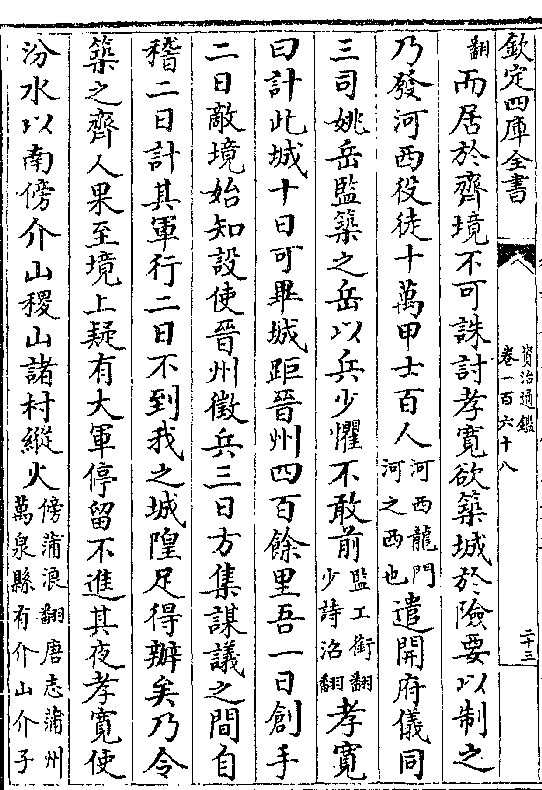 欽定四庫全書
資治通鑑
卷一百六十八
二十三
翻而居於齊境不可誅討孝寛欲築城於險要以制之
乃發河西役徒十萬甲士百人河西龍門河之西也遣開府儀同
三司姚岳監築之岳以兵少懼不敢前監工銜翻少詩沼翻孝寛
曰計此城十日可畢城距晉州四百餘里吾一日創手
二日敵境始知設使晉州徵兵三日方集謀議之間自
稽二日計其軍行二日不到我之城隍足得辦矣乃令
築之齊人果至境上疑有大軍停留不進其夜孝寛使
汾水以南傍介山稷山諸村縱火傍蒲浪翻唐志蒲州萬泉縣有介山介子